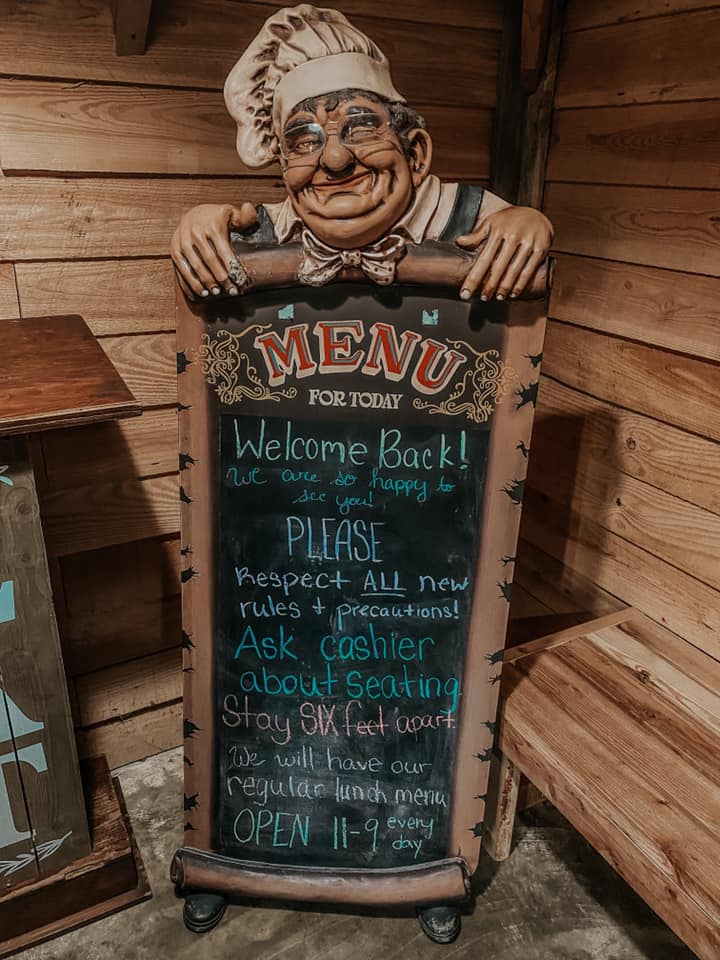 MENU
FOR TODAY
Welcome Back!
We are so happy to
see you!
PLEASE
Respect ALL new
rules + precautions!
Ask cashier
about seating
Stay SIX feet apart
We will have our
regular lunch menu
OPEN 11-9 every
day